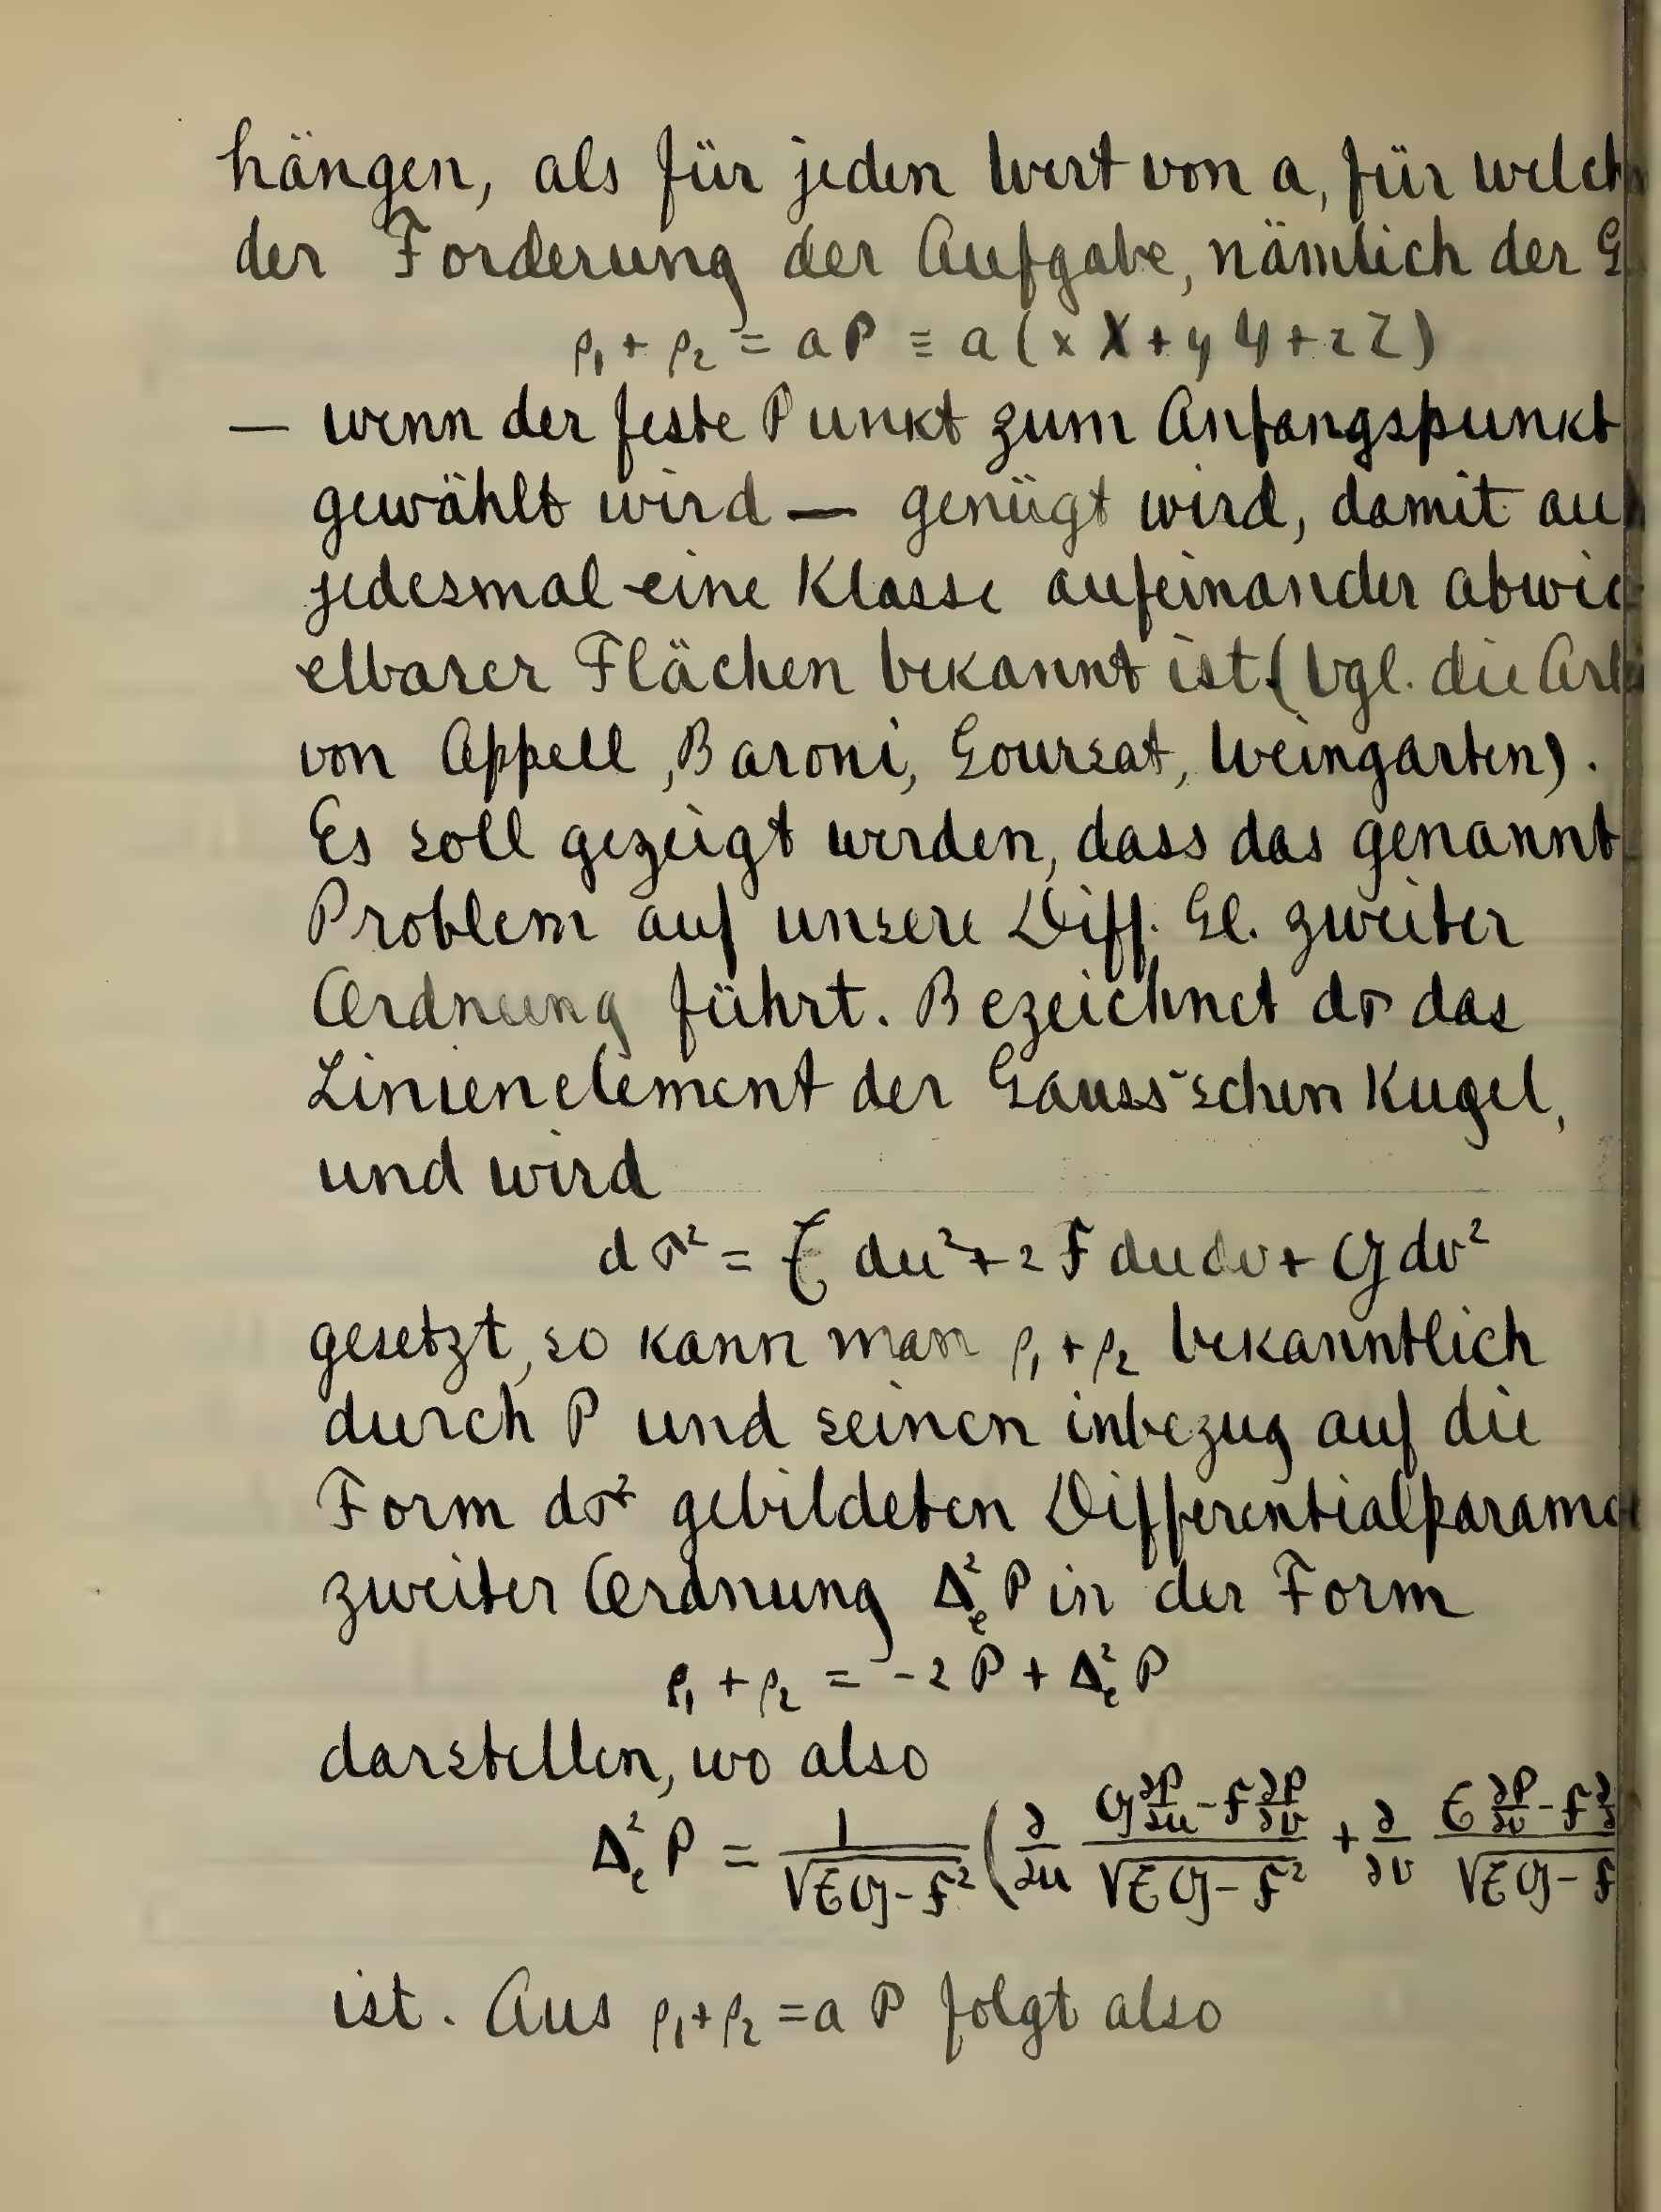 hängen, als für jeden Wert von a, für welch
der Forderung der Aufgabe, nämlich der G
ρ₁ + ρ₂ = a P ≡ a ( x X + y Y + z Z )
— wenn der feste Punkt zum Anfangspunkt
gewählt wird — genügt wird, damit au
jedesmal eine Klasse aufeinander abwic
elbarer Flächen bekannt ist (Vgl. die Arb
von Appell, Baroni, Goursat, Weingarten).
Es soll gezeigt werden, dass das genannt
Problem auf unsere Diff. Gl. zweiter
Ordnung führt. Bezeichnet dσ das
Linienelement der Gauss'schen Kugel,
und wird
dσ² = E du² + 2 F du dv + G dv²
gesetzt, so kann man ρ₁ + ρ₂ bekanntlich
durch P und seinen inbezug auf die
Form dσ² gebildeten Differentialparame
zweiter Ordnung Δ²ₑ P in der Form
ρ₁ + ρ₂ = -2 P + Δ²ₑ P
darstellen, wo also
Δ²ₑ P = 1/√(EG - F²) ( ∂/∂u (G ∂P/∂u - F ∂P/∂v)/√(EG - F²) + ∂/∂v (E ∂P/∂v - F ∂/∂)/√(EG - F
ist. Aus ρ₁ + ρ₂ = a P folgt also